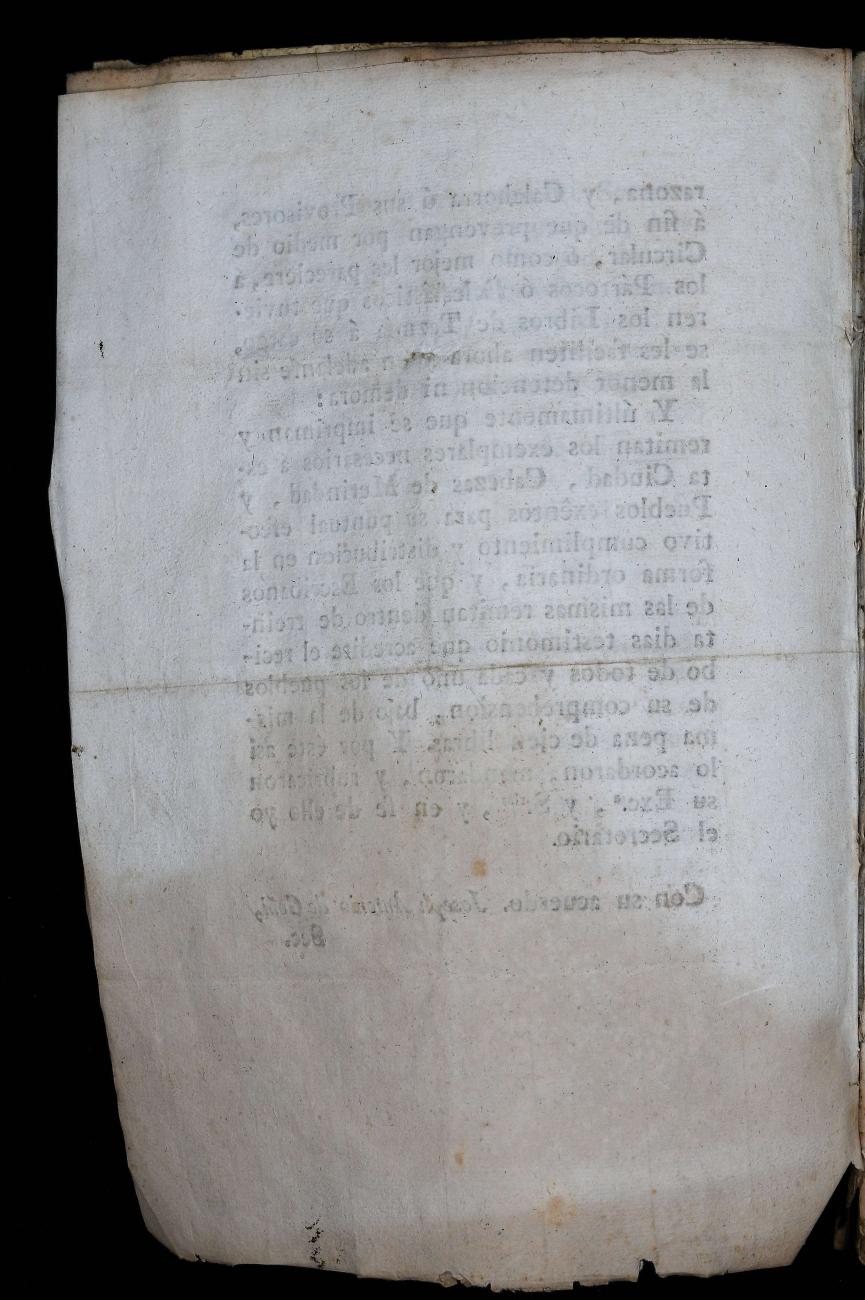 razona, y Calahorra ú sus Provisores,
á fin de que prevengan por medio de
Circular, ó como mejor les pareciere, á
los Párrocos ó Eclesiásticos que tuvie-
ren los Libros de á su cargo,
se les faciliten ahora y en adelante sin
la menor detencion ni demora:
Y últimamente que se impriman y
remitan los exemplares necesarios á es-
ta Ciudad, Cabezas de Merindad, y
Pueblos exêntos para su puntual efec-
tivo cumplimiento y distribucion en la
forma ordinaria, y que los Escribanos
de las mismas remitan dentro de trein-
ta dias testimonio que acredite el reci-
bo de todos y cada uno de los pueblos
de su comprehension, bajo de la mis-
ma pena de cien libras. Y por éste asi
lo acordaron, mandaron, y rubricaron
su Exc.ª, y S., y en fé de ello yo
el Secretario.
Con su acuerdo. Joseph Antonio de Goñi,
Sec.